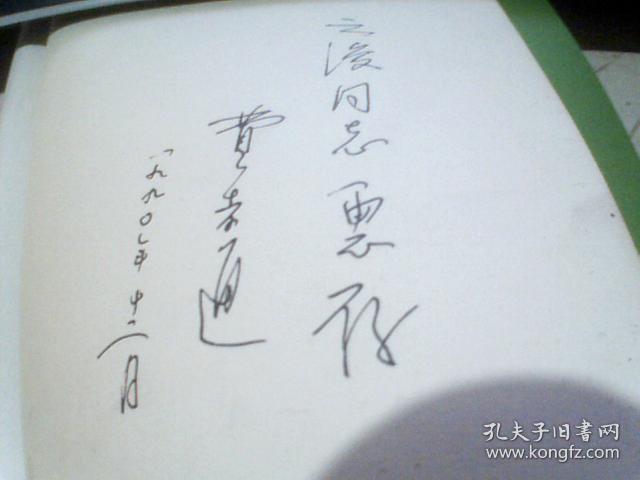 立浚同志惠存
费孝通
一九九〇年十二月
孔夫子旧书网
www.kongfz.com